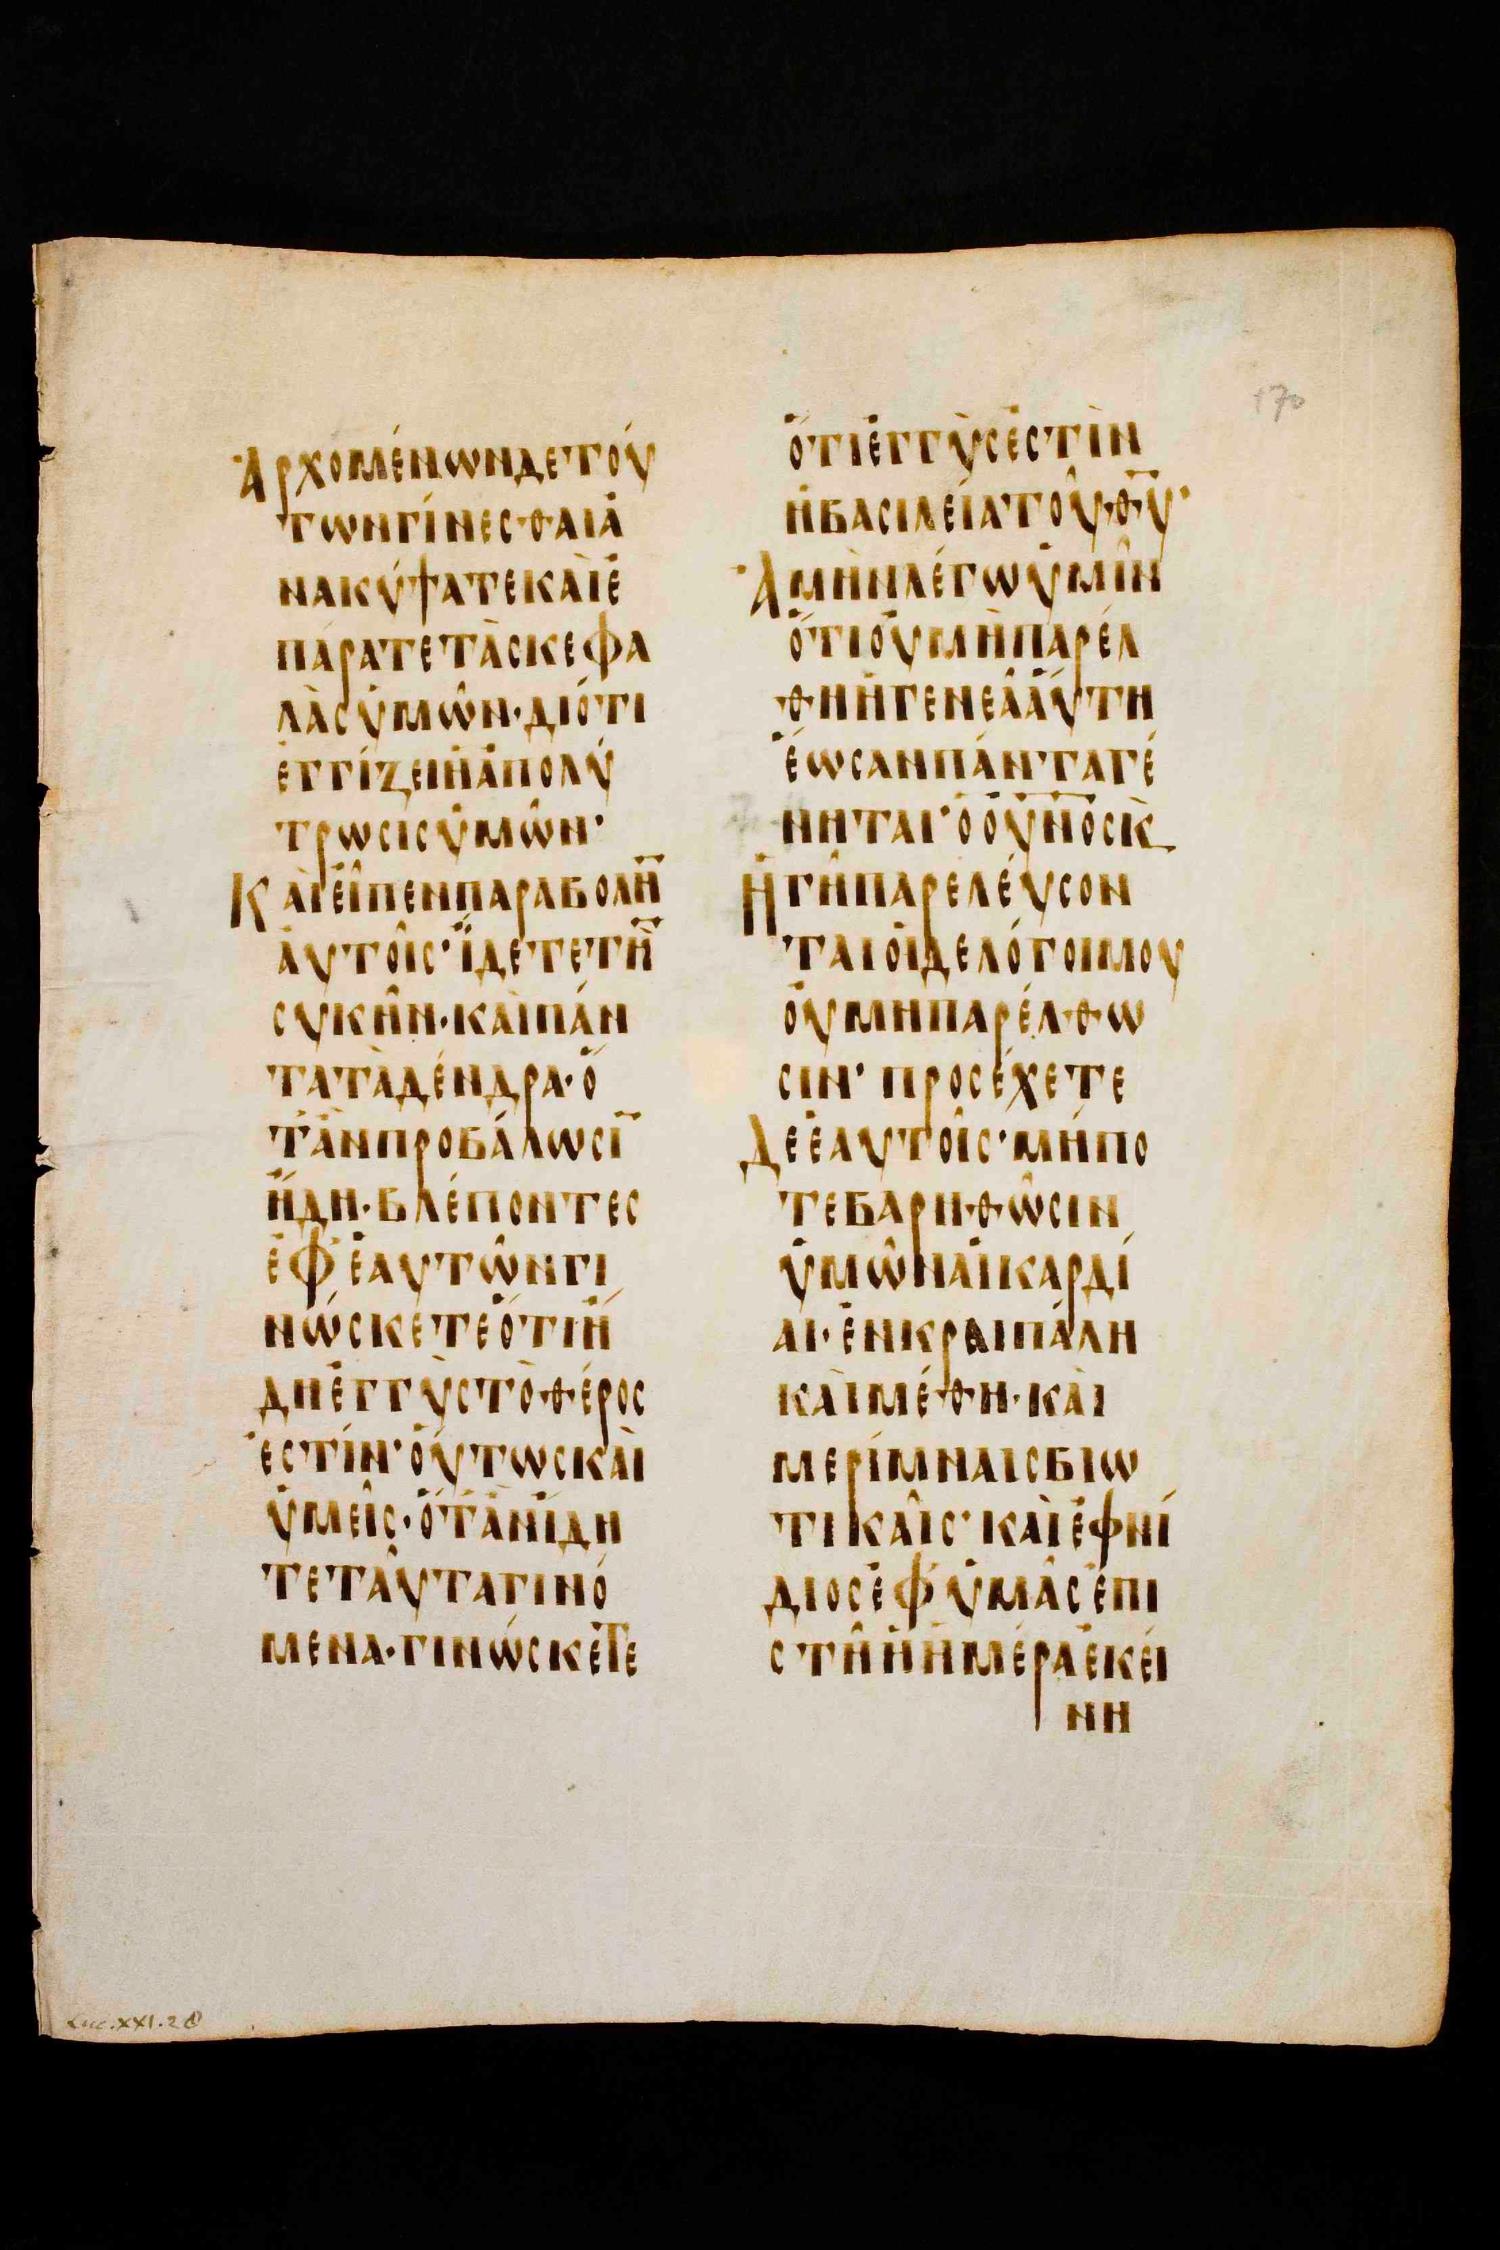 Ἀρχομένων δὲ τού
των γίνεσθαι ἀ
νακύψατε καὶ ἐ
πάρατε τὰς κεφα
λὰς ὑμῶν· διότι
ἐγγίζει ἡ ἀπολύ
τρωσις ὑμῶν·
Καὶ εἶπεν παραβολὴ̅
αὐτοῖς· ἴδετε τὴ̅
συκῆν· καὶ πάν
τα τὰ δένδρα· ὅ
τἂν προβάλωσῑ
ἤδη· βλέποντες
ἐφ' ἑαυτῶν γι
νώσκετε ὅτι ἤ
δη ἐγγὺς τὸ θέρος
ἐστίν· οὕτως καὶ
ὑμεῖς· ὅτἂν ἴδη
τε ταῦτα γινό
μενα· γινώσκετε
ὅτι ἐγγὺς ἐστὶν
ἡ βασιλεία τοῦ θ̅υ̅·
Ἀμὴν λέγω ὑμῖν
ὅτι οὐ μὴ παρέλ
θη ἡ γενεὰ αὕτη
ἕως ἂν πάντα γέ
νηται· ὁ ο̅υ̅ν̅ο̅ς κ̀
ἡ γῆ παρελεύσον
ται οἱ δε λόγοι μου
οὐ μη παρέλθω
σιν· προσέχετε
Δε ἑαυτοῖς· μήπο
τε βαρηθῶσιν
ὑμῶν αἱ καρδί
αι· ἐν κραιπάλη
καὶ μέθη· καὶ
μερίμναις βιω
τικαῖς· καὶ ἐφνί
διος ἐφ' ὑμᾶς ἐπι
στῆ ἡ ἡμέρα ἐκεί
νη
170
Luc. XXI. 28